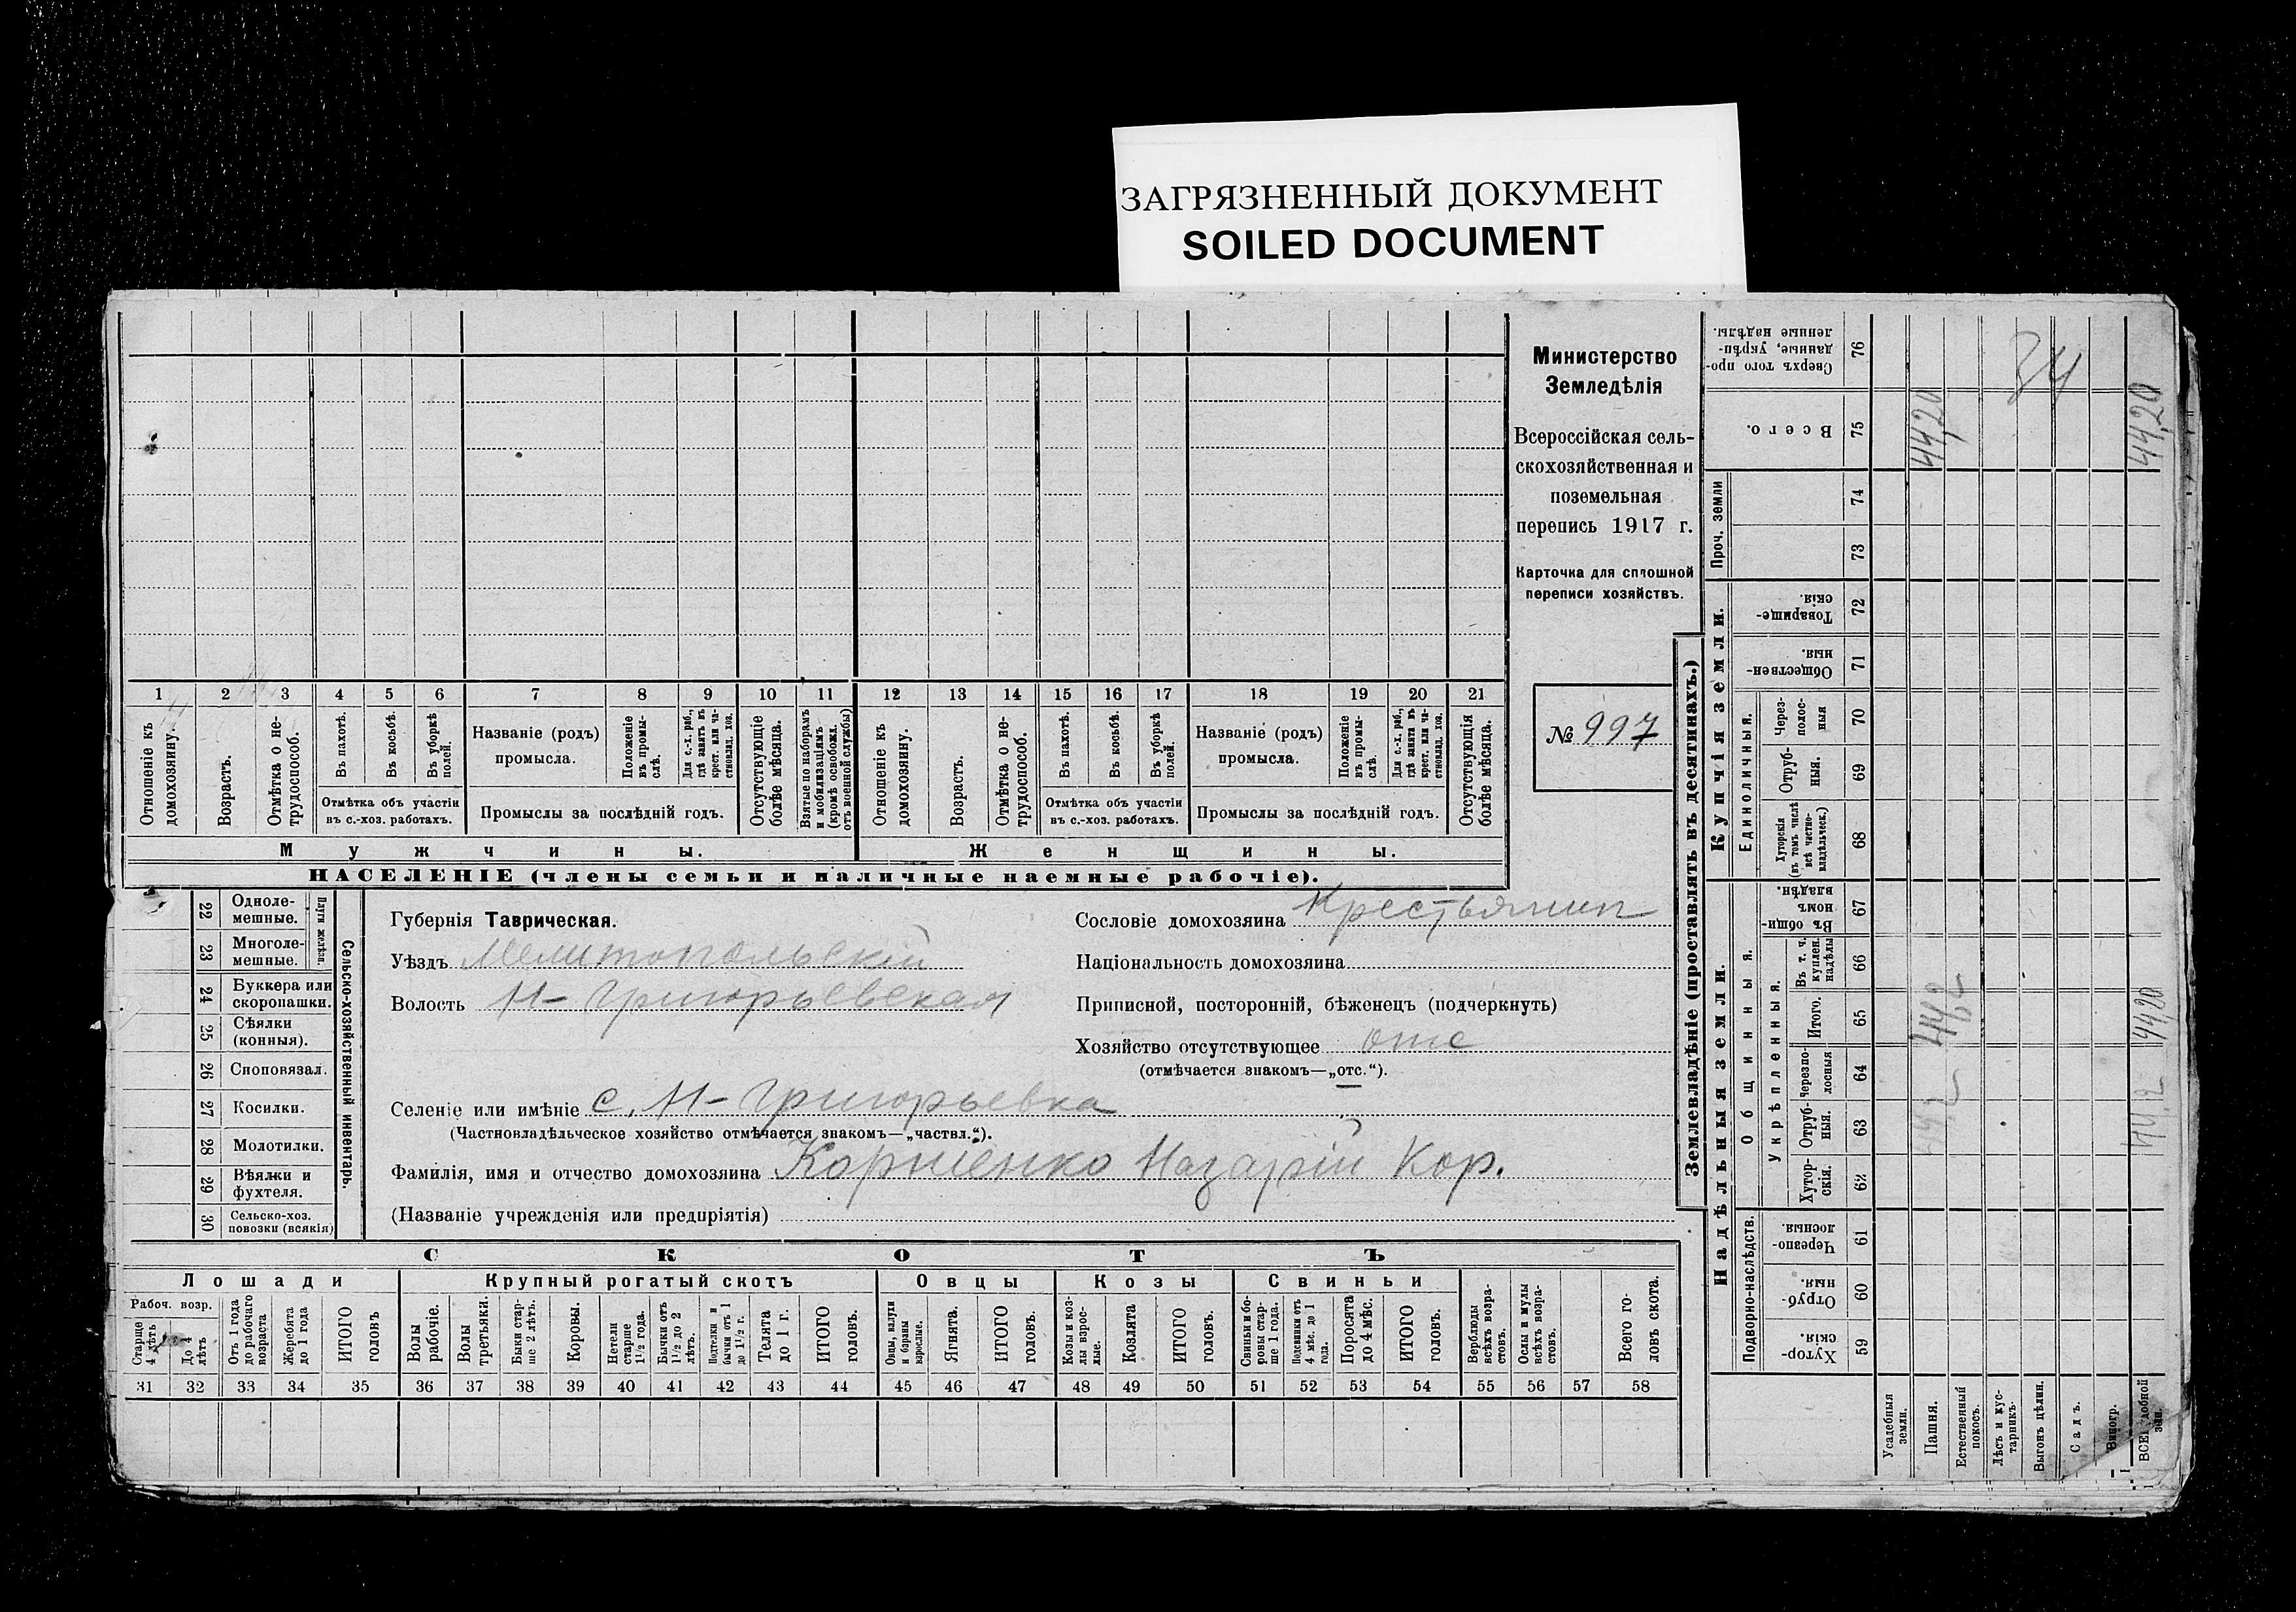 ЗАГРЯЗНЕННЫЙ ДОКУМЕНТ
SOILED DOCUMENT
Министерство
Земледѣлія
Всероссійская сель-
скохозяйственная и
поземельная
перепись 1917 г.
Карточка для сплошной
переписи хозяйствъ.
№ 997
1 2 3 4 5 6 7 8 9 10 11 12 13 14 15 16 17 18 19 20 21
Отношеніе къ домохозяину.
Возрастъ.
Отмѣтка о не-трудоспособ.
Въ пахотѣ.
Въ косьбѣ.
Въ уборкѣ полей.
Отмѣтка объ участіи
въ с.-хоз. работахъ.
Названіе (родъ)
промысла.
Положеніе въ промы-слѣ.
Для с.-х. раб., гдѣ занятъ въ крест. или ча-стновлад. хоз.
Промыслы за послѣдній годъ.
Отсутствующіе болѣе мѣсяца.
Взятые по наборамъ и мобилизаціямъ (кромѣ освобожд. отъ военной службы)
Отношеніе къ домохозяину.
Возрастъ.
Отмѣтка о не-трудоспособ.
Въ пахотѣ.
Въ косьбѣ.
Въ уборкѣ полей.
Отмѣтка объ участіи
въ с.-хоз. работахъ.
Названіе (родъ)
промысла.
Положеніе въ промы-слѣ.
Для с.-х. раб., гдѣ занята въ крест. или ча-стновлад. хоз.
Промыслы за послѣдній годъ.
Отсутствующія болѣе мѣсяца.
Мужчины.
Женщины.
НАСЕЛЕНІЕ (члены семьи и наличные наемные рабочіе).
22 Одноле-мешные.
23 Многоле-мешные.
Плуги желѣзн.
24 Буккера или скоропашки.
25 Сѣялки (конныя).
26 Сноповязал.
27 Косилки.
28 Молотилки.
29 Вѣялки и фухтеля.
30 Сельско-хоз. повозки (всякія)
Сельско-хозяйственный инвентарь.
Губернія Таврическая.
Уѣздъ Мелитопольскій
Волость Н-Григорьевская
Сословіе домохозяина Крестьянин
Національность домохозяина
Приписной, посторонній, бѣженецъ (подчеркнуть)
Хозяйство отсутствующее отс
(отмѣчается знакомъ—„отс.“).
Селеніе или имѣніе с. Н-Григорьевка
(Частновладѣльческое хозяйство отмѣчается знакомъ—„частвл.“).
Фамилія, имя и отчество домохозяина Корниенко Назарій Кор.
(Названіе учрежденія или предпріятія)
СКОТЪ
Лошади
Крупный рогатый скотъ
Овцы
Козы
Свиньи
Рабоч. возр.
Старше 4 лѣтъ
До 4 лѣтъ
Отъ 1 года до рабочаго возраста
Жеребята до 1 года
ИТОГО головъ
Волы рабочіе.
Волы третьяки.
Быки стар-ше 2 лѣтъ.
Коровы.
Нетели старше 1½ года.
Бычки отъ 1½ до 2 лѣтъ.
Подтелки и бычки отъ 1 до 1½ г.
Телята до 1 г.
ИТОГО головъ.
Овцы, валухи и бараны взрослые.
Ягнята.
ИТОГО головъ.
Козы и коз-лы взрос-лые.
Козлята
ИТОГО головъ.
Свиньи и бо-ровы стар-ше 1 года.
Подсвинки отъ 4 мѣс. до 1 года.
Поросята до 4 мѣс.
ИТОГО головъ.
Верблюды всѣхъ возра-стовъ.
Ослы и мулы всѣхъ возра-стовъ.
Всего го-ловъ скота.
31 32 33 34 35 36 37 38 39 40 41 42 43 44 45 46 47 48 49 50 51 52 53 54 55 56 57 58
Землевладѣніе (проставлять въ десятинахъ.)
Надѣльныя земли.
Купчія земли.
Проч. земли
Подворно-наслѣдств.
Общинныя.
Укрѣпленныя.
Единоличныя.
76 Сверхъ того про-данные, укрѣп-ленные надѣлы.
75 Всего. 44,20 44,20
34
74
73
72 Товарище-скія.
71 Обществен-ныя.
70 Через-полос-ныя
69 Отруб-ныя.
68 Хуторскія (въ томъ числѣ всѣ частно-владѣльческ.)
67 Въ общин-номъ владѣн.
66 Въ т. ч. куплен. надѣлы
65 Итого. 44,20
64 Черезпо-лосныя
63 Отруб-ныя.
62 Хутор-скія.
61 Черезпо-лосныя.
60 Отруб-ныя.
59 Хутор-скія.
Усадебныя земли.
Пашня.
Естественный покосъ.
Лѣсъ и кус-тарникъ.
Выгонъ цѣлин.
Садъ.
Виногр.